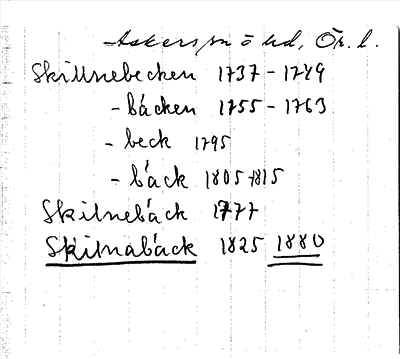 Askersunds hd, Ör. l.
Skillnebecken 1737-1749
-bäcken 1755-1763
-beck 1795
-bäck 1805-1815
Skilnebäck 1777
Skilnabäck 1825 1880